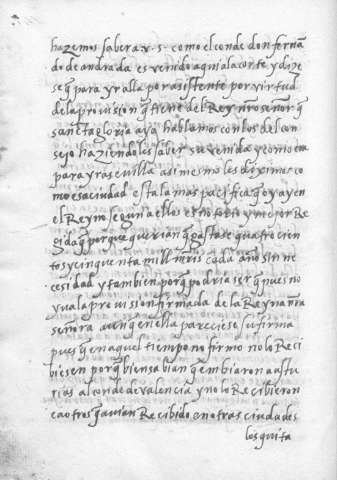 hazemos saber a v. s. como el conde don ferna
do de andrada es venido aqui a la corte y dize
se q para yr alla por asistente por virtud
de la provision q tiene del Rey nro señor q
sancta gloria aya hablamos con los del con
sejo haziendoles saber su venida y como era
para yr a sevilla asimesmo les diximos co
mo esa ciudad esta la mas pacifica q oy ay en
el Reyno segun a ellos es notorio y mejor Re
gida q porque querian q gastase quatrocien
tos y cinquenta mill mrs cada año sin ne
cesidad y tambien porq podria ser q pues no
yva la provision firmada de la Reyna nra
señora aunq en ella pareciese su firma
pues q en aquel tiempo no firmo no lo Reci
biesen porq bien sabian q embiaron a astu
rias al conde de valencia y no lo Recibieron
ca otros q avian Recibido en otras ciudades
los quita